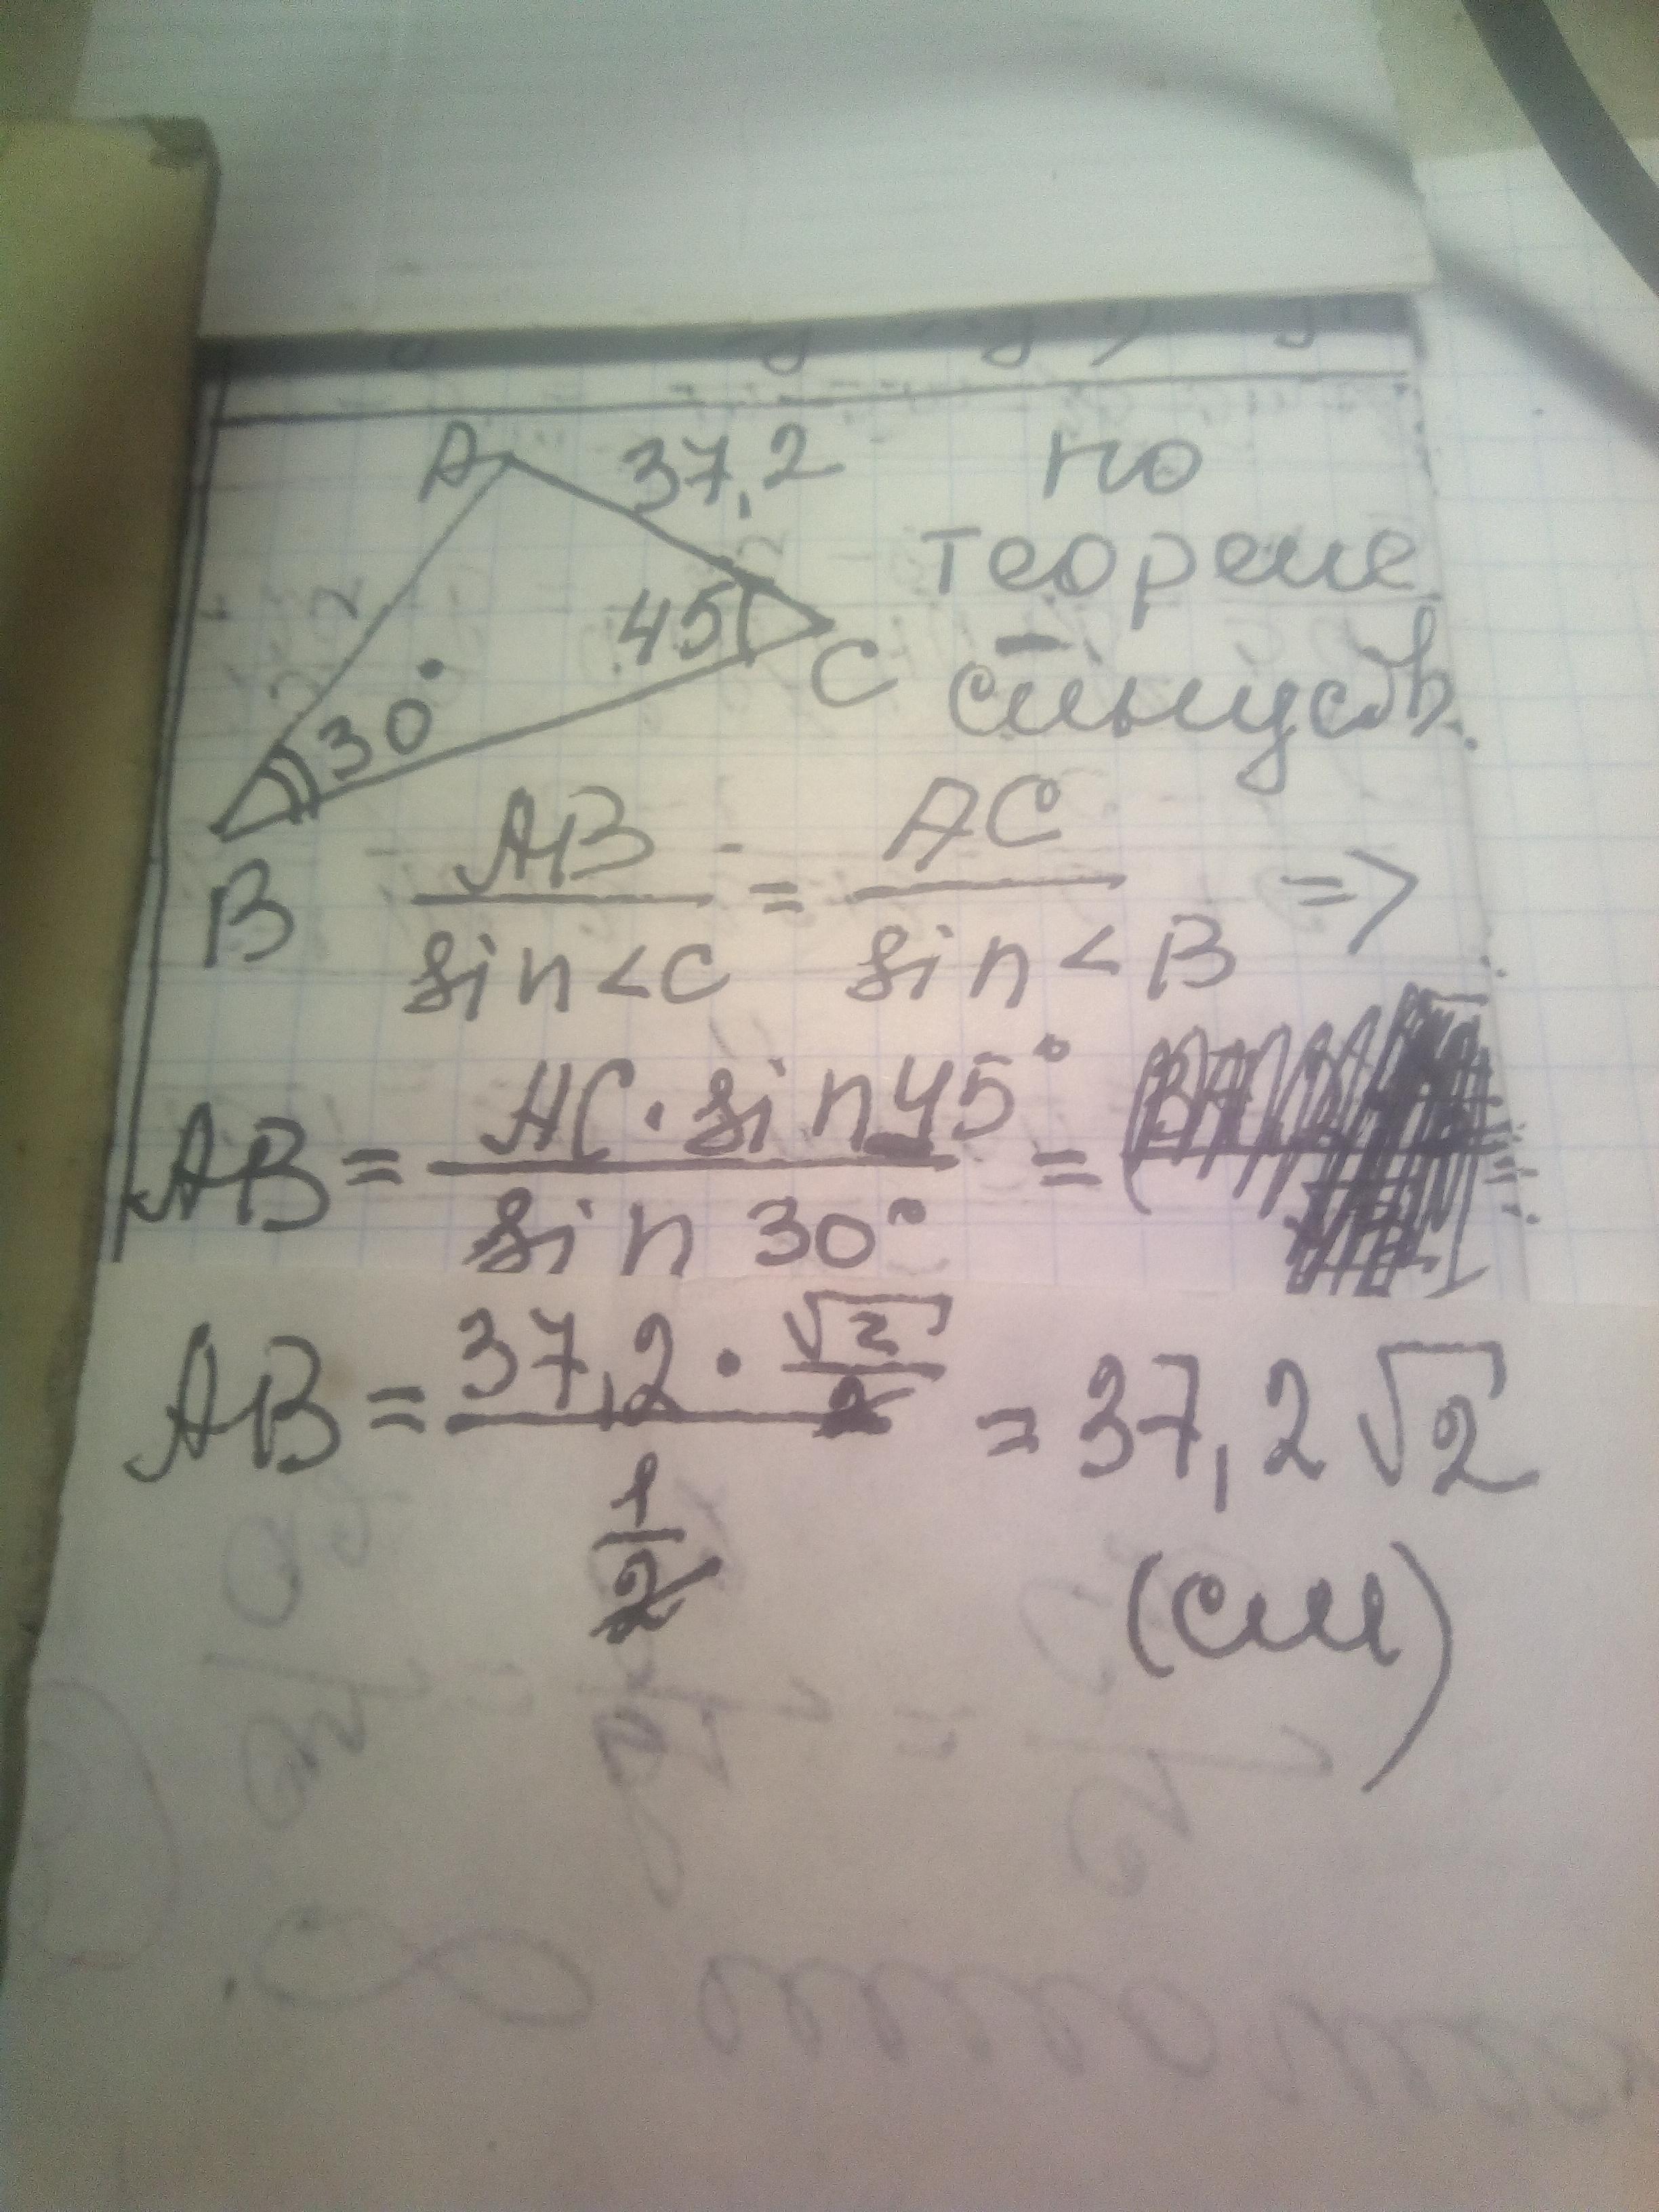 A 37,2 по
теореме
45 C синусов.
30°
B AB/sin<C = AC/sin<B =>
AB = AC·sin45°/sin30° =
AB = 37,2·√2/2 / 1/2 = 37,2√2
(см)